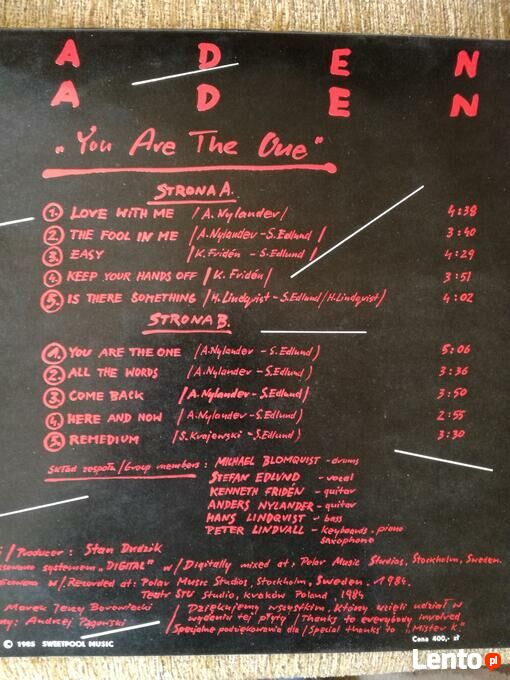 A D E N
A D E N
"You Are The One"
STRONA A.
1. LOVE WITH ME /A. Nylander/ 4:38
2. THE FOOL IN ME /A. Nylander - S. Edlund/ 3:40
3. EASY /K. Fridén - S. Edlund/ 4:29
4. KEEP YOUR HANDS OFF /K. Fridén/ 3:51
5. IS THERE SOMETHING /H. Lindqvist - S. Edlund/H. Lindqvist/ 4:02
STRONA B.
1. YOU ARE THE ONE /A. Nylander - S. Edlund) 5:06
2. ALL THE WORDS /A. Nylander - S. Edlund) 3:36
3. COME BACK /A. Nylander - S. Edlund/ 3:50
4. HERE AND NOW /A. Nylander - S. Edlund) 2:55
5. REMEDIUM /S. Krajewski - S. Edlund) 3:30
Skład zespołu/Group members: MICHAEL BLOMQUIST - drums
STEFAN EDLUND - vocal
KENNETH FRIDÉN - guitar
ANDERS NYLANDER - guitar
HANS LINDQVIST - bass
PETER LINDVALL - keyboards, piano
saxophone
/ Producer: Stan Dudzik
systemem "DIGITAL" w / Digitally mixed at: Polar Music Studios, Stockholm, Sweden.
w/. Recorded at: Polar Music Studios, Stockholm, Sweden. 1984.
Teatr STU Studio, Kraków Poland, 1984
Marek Jerzy Borowiecki / Dziękujemy wszystkim, którzy wzięli udział w
Andrzej Pągowski wydaniu tej płyty / Thanks to everybody involved
Specjalne podziękowania dla / Special thanks to "Mister K."
© 1985 SWEETPOOL MUSIC Cena 400,- zł
Lento.pl